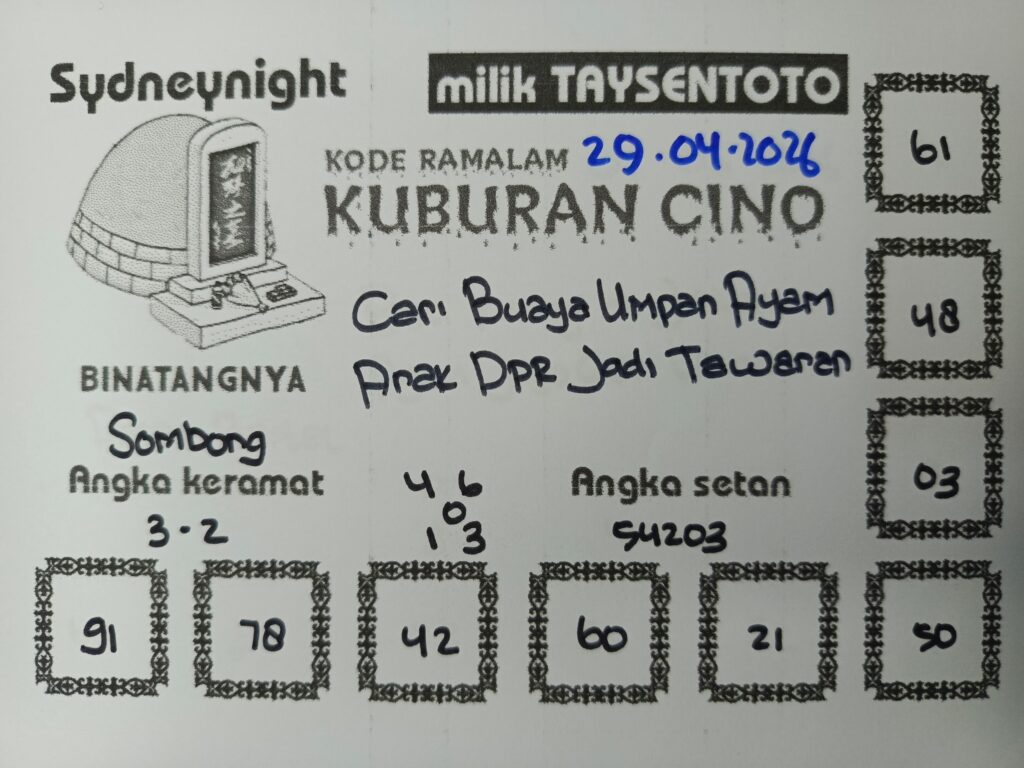 Sydneynight
milik TAYSENTOTO
KODE RAMALAM 29.04.2026
KUBURAN CINO
Cari Buaya Umpan Ayam
Anak DPR Jadi Tawaran
BINATANGNYA
Sombong
Angka keramat
3.2
4 6
0
1 3
Angka setan
54203
61
48
03
91 78 42 60 21 50